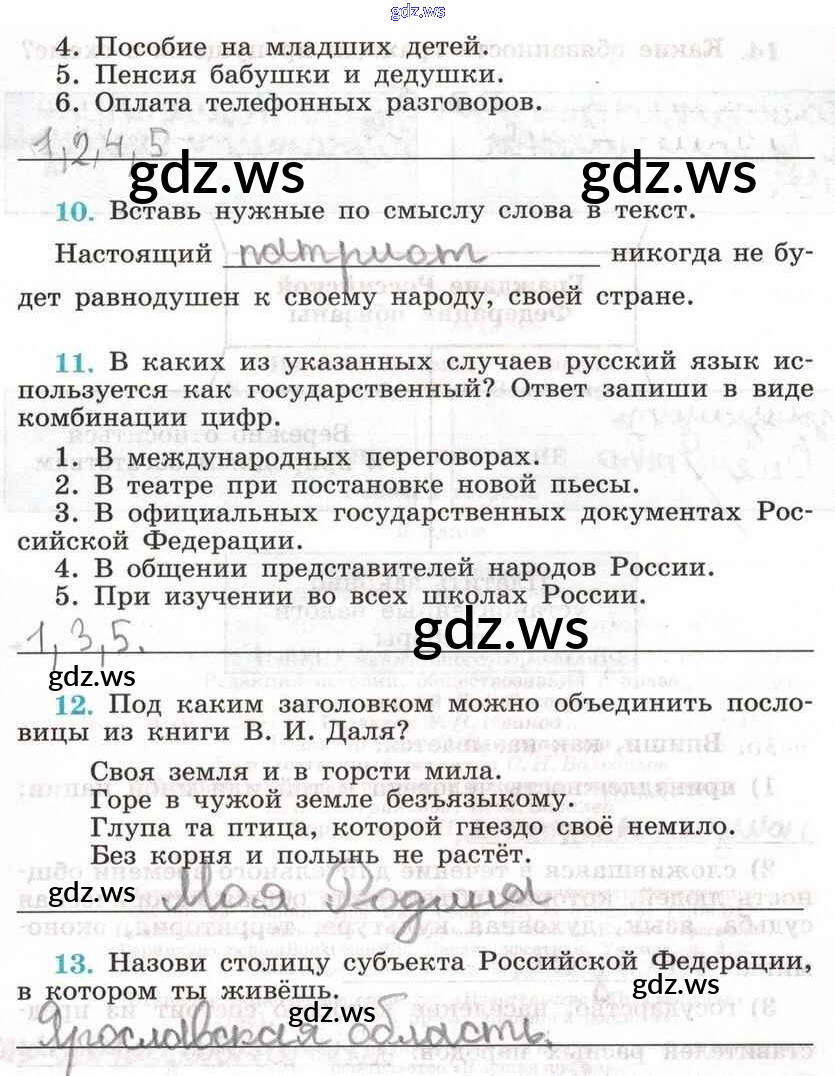 gdz.ws
4. Пособие на младших детей.
5. Пенсия бабушки и дедушки.
6. Оплата телефонных разговоров.
1,2,4,5
gdz.ws gdz.ws
10. Вставь нужные по смыслу слова в текст.
Настоящий патриот никогда не бу-
дет равнодушен к своему народу, своей стране.
11. В каких из указанных случаев русский язык ис-
пользуется как государственный? Ответ запиши в виде
комбинации цифр.
1. В международных переговорах.
2. В театре при постановке новой пьесы.
3. В официальных государственных документах Рос-
сийской Федерации.
4. В общении представителей народов России.
5. При изучении во всех школах России.
1,3,5. gdz.ws
gdz.ws
12. Под каким заголовком можно объединить посло-
вицы из книги В. И. Даля?
Своя земля и в горсти мила.
Горе в чужой земле безъязыкому.
Глупа та птица, которой гнездо своё немило.
Без корня и полынь не растёт.
gdz.ws Моя Родина
13. Назови столицу субъекта Российской Федерации,
в котором ты живёшь. gdz.ws
gdz.ws
Ярославская область.